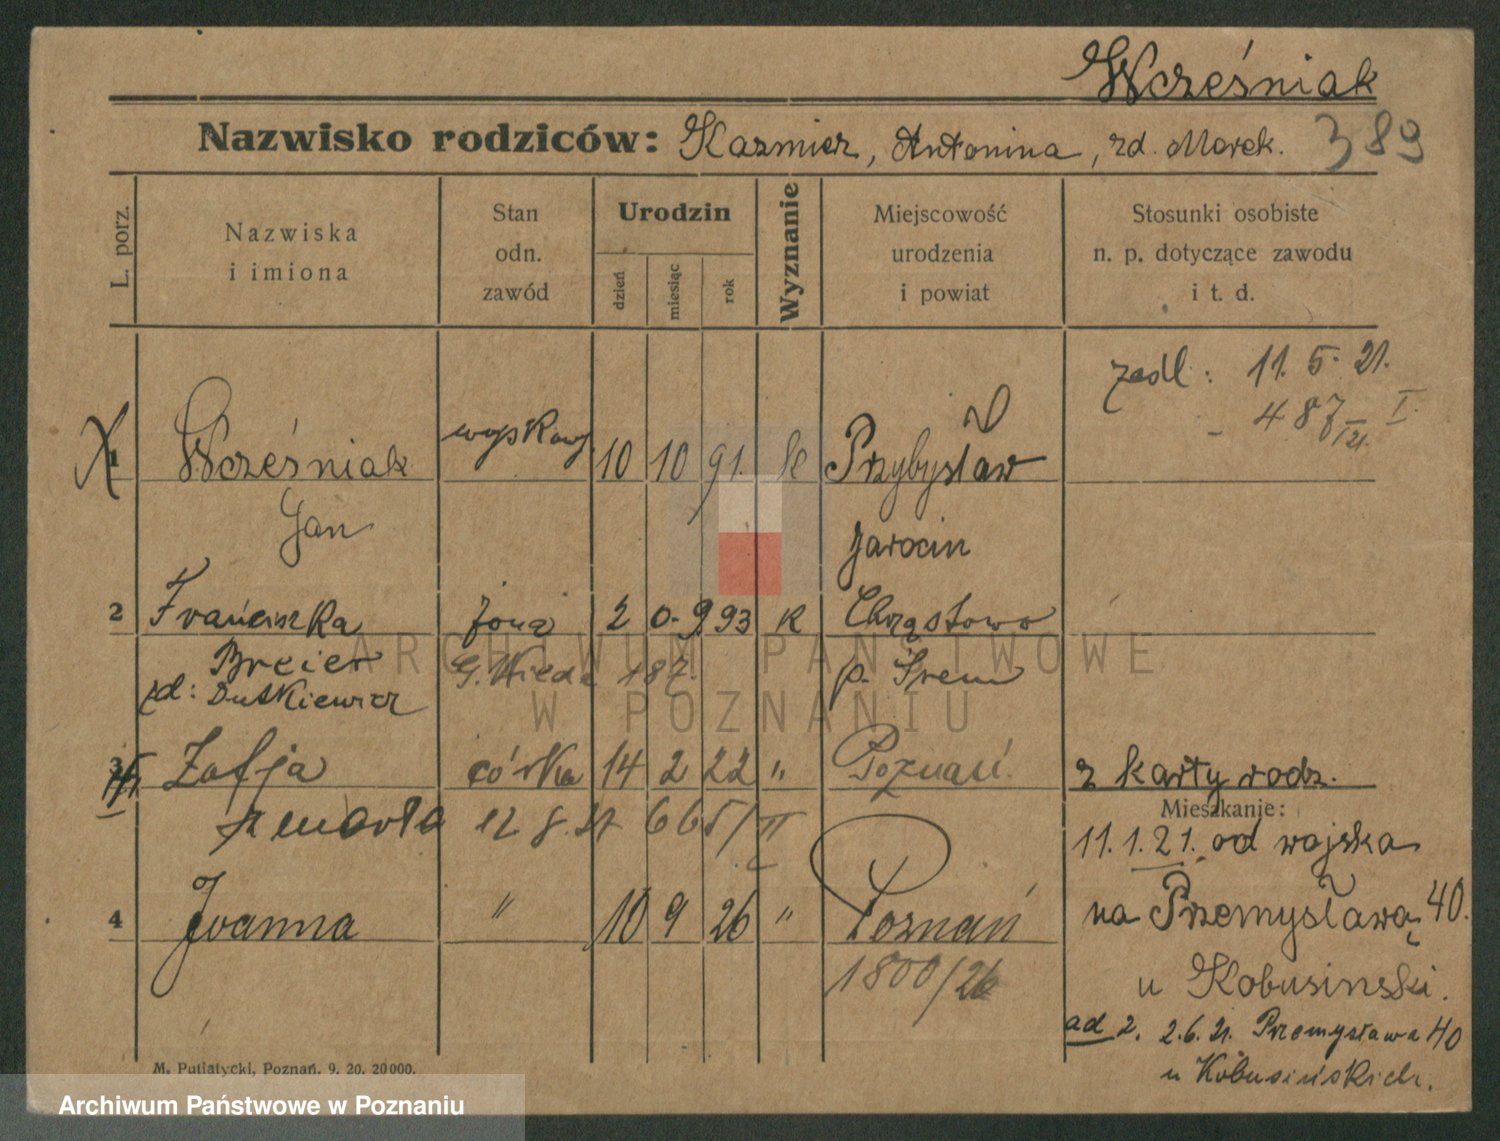 Wcześniak
Nazwisko rodziców: Kazmierz, Antonina, zd. Marek. 389
L. porz.
Nazwiska
i imiona
Stan
odn.
zawód
Urodzin
dzień
miesiąc
rok
Wyznanie
Miejscowość
urodzenia
i powiat
Stosunki osobiste
n. p. dotyczące zawodu
i t. d.
zedl: 11. 5. 21.
487/21. I.
1 Wcześniak wojskowy 10 10 91. k Przybysław
Jan Jarocin
2 Franciszka żona 2 0-9 93 K Chrząstowo
Breier p. Śrem
zd: Dutkiewicz
3 Zofja córka 14 2 22 " Poznań z karty rodz.
zmarła 12 8. 27 665/II
Mieszkanie:
11. 1. 21. od wojska
4 Joanna " 10 9 26 " Poznań na Przemysława 40.
1800/26
u Kobusinski.
ad 2. 2.6.21. Przemysława 40
u Kobusińskich.
M. Putiatycki, Poznań. 9. 20. 20000.
ARCHIWUM PAŃSTWOWE
W POZNANIU
Archiwum Państwowe w Poznaniu